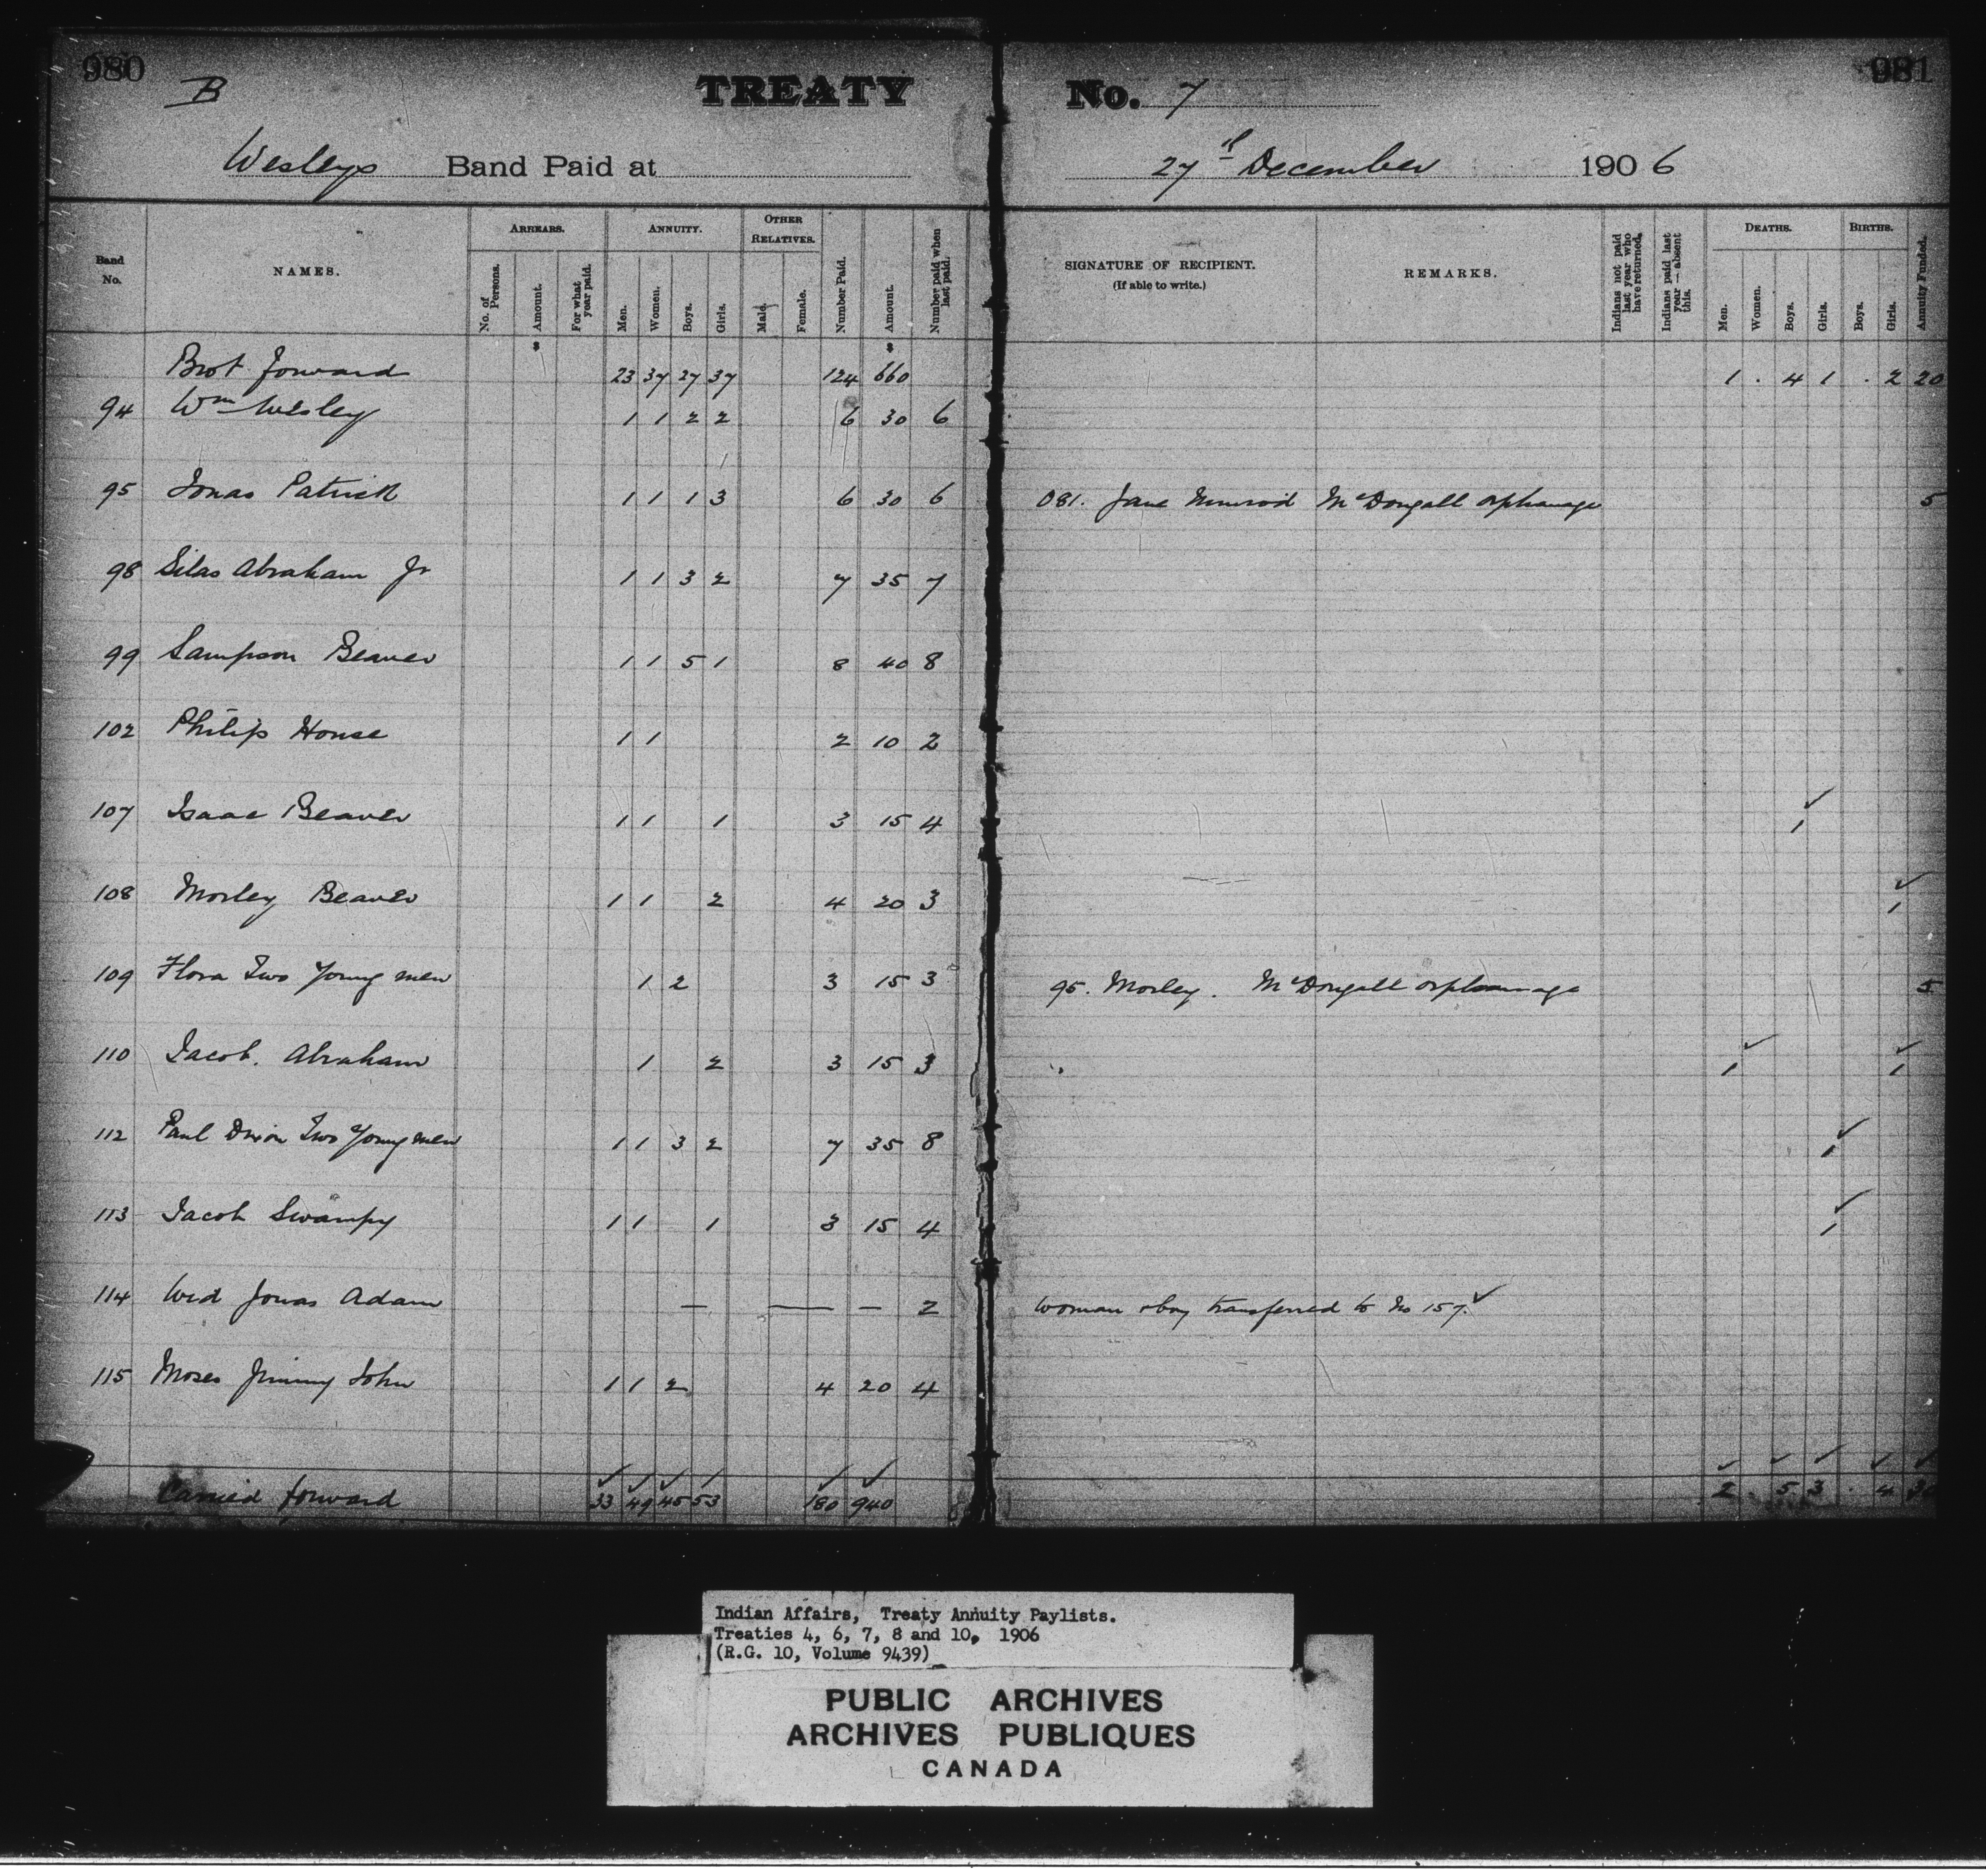 980 981
B TREATY No. 7
Wesleys Band Paid at 27th December 1906
Band No. NAMES. ARREARS. No. of Persons. Amount. For what year paid. ANNUITY. Men. Women. Boys. Girls. OTHER RELATIVES. Male. Female. Number Paid. Amount. Number paid when last paid. SIGNATURE OF RECIPIENT. (If able to write.) REMARKS. Indians not paid last year who have returned. Indians paid last year — absent this. DEATHS. Men. Women. Boys. Girls. BIRTHS. Boys. Girls. Annuity Funded.
$ $
Brot forward 23 37 27 37 124 660 1 . 4 1 . 2 20
94 Wm Wesley 1 1 2 2 6 30 6
95 Jonas Patrick 1 1 1 3 6 30 6 081. Jane Nimrod McDougall orphanage 5
98 Silas Abraham Jr 1 1 3 2 7 35 7
99 Sampson Beaver 1 1 5 1 8 40 8
102 Philip House 1 1 2 10 2
107 Isaac Beaver 1 1 1 3 15 4 ✓ 1
108 Morley Beaver 1 1 2 4 20 3 ✓ 1
109 Flora Two Young men 1 2 3 15 3 95. Morley. McDougall orphanage 5
110 Jacob. Abraham 1 2 3 15 3 ✓ 1 ✓ 1
112 Paul Dixon Two Young men 1 1 3 2 7 35 8 ✓ 1
113 Jacob Swampy 1 1 1 3 15 4 ✓ 1
114 Wid Jonas Adam — — — 2 woman & boy transferred to No 157. ✓
115 Moses Jimmy John 1 1 2 4 20 4
✓ ✓ ✓ ✓ ✓ ✓ ✓ ✓ ✓ ✓ ✓
Carried forward 33 49 45 53 180 940 2 . 5 3 . 4 30
Indian Affairs, Treaty Annuity Paylists.
Treaties 4, 6, 7, 8 and 10, 1906
(R.G. 10, Volume 9439)
PUBLIC ARCHIVES
ARCHIVES PUBLIQUES
CANADA